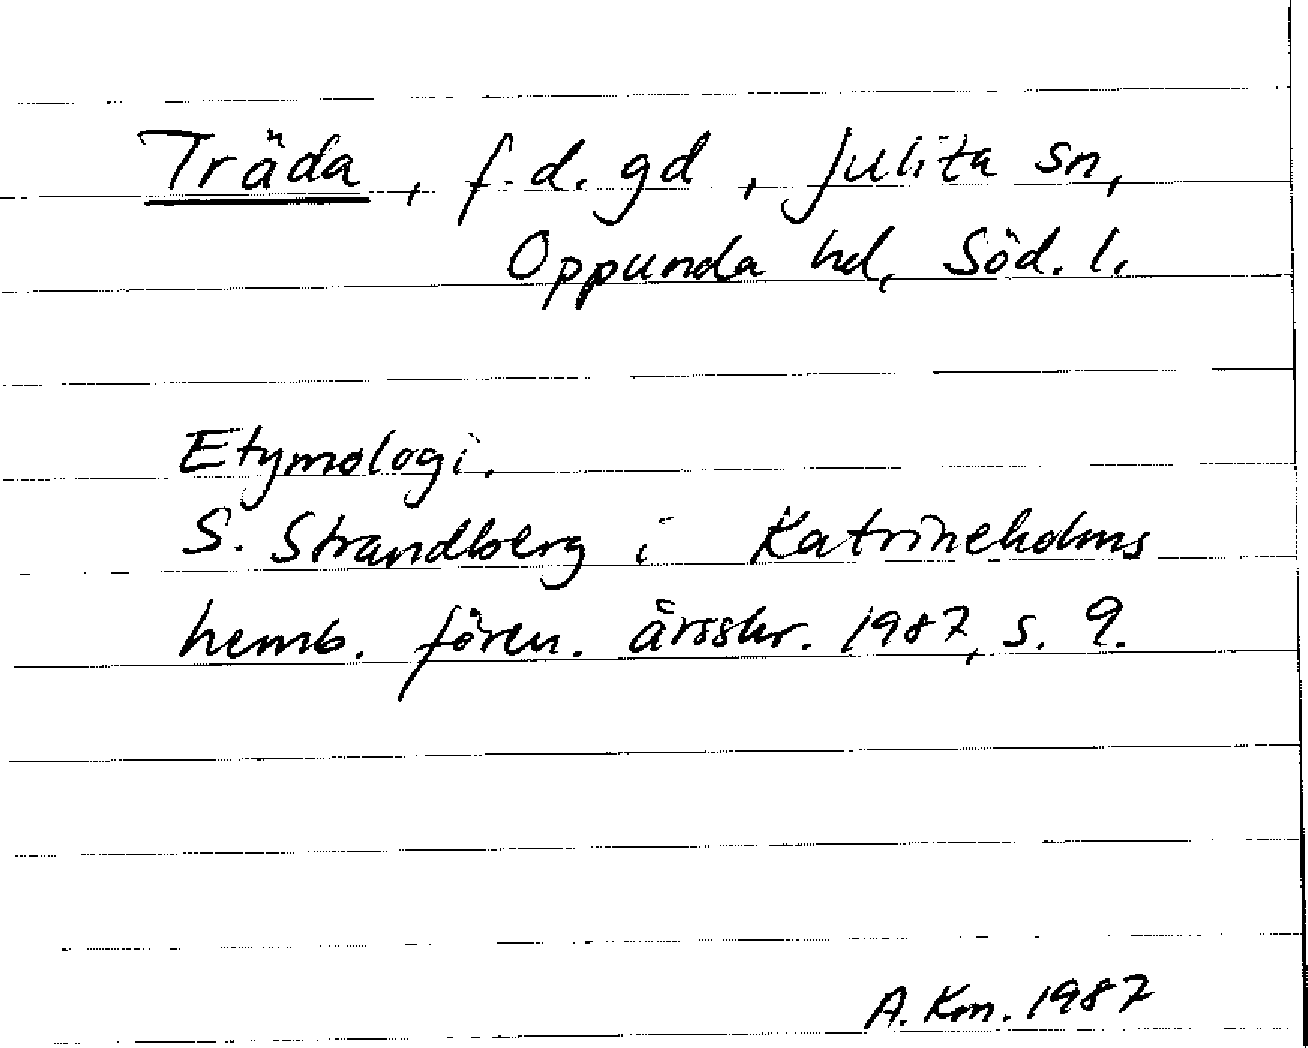 Träda, f.d. gd, Julita sn,
Oppunda hd, Söd. l.
Etymologi.
S. Strandberg i Katrineholms
hemb. fören. årsskr. 1987, s. 9.
A. Km. 1987